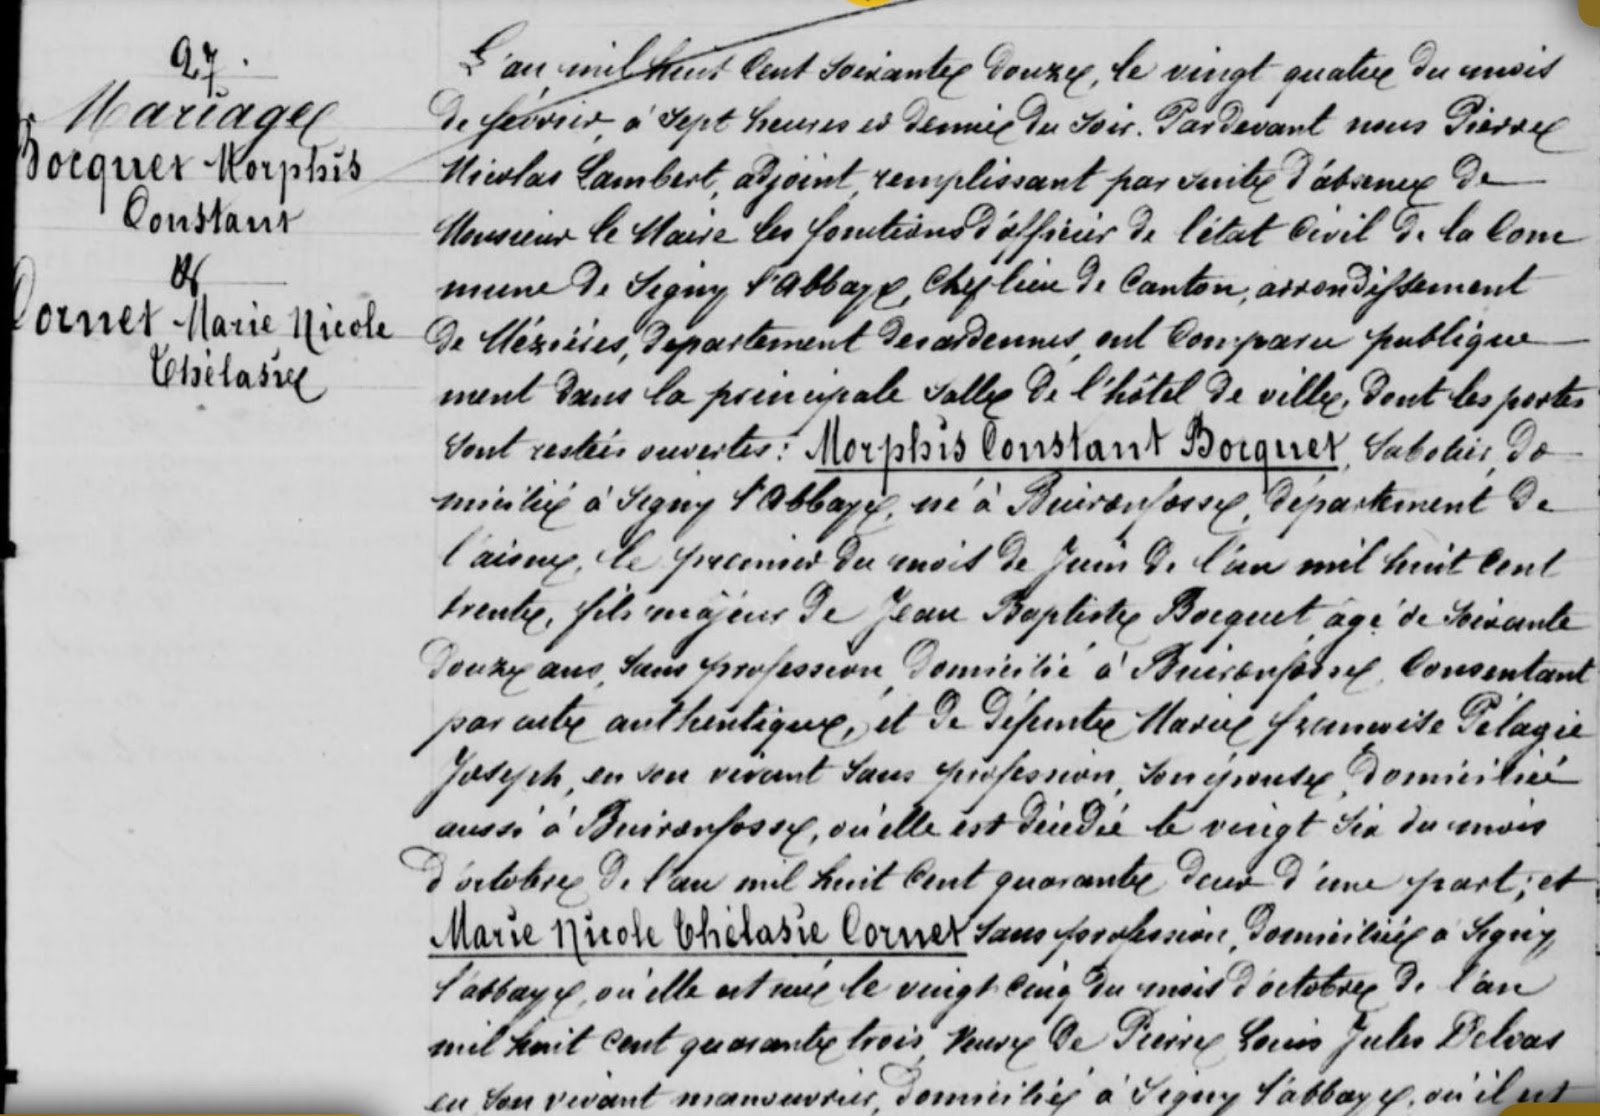 27.
Mariage
Bocquet Morphis
Constant
&
Cornet Marie Nicole
Thélasie
L'an mil huit cent soixante douze, le vingt quatre du mois
de février, à sept heures et demie du soir. Pardevant nous Pierre
Nicolas Lambert, adjoint, remplissant par suite d'absence de
Monsieur le Maire les fonctions d'officier de l'état Civil de la Com
mune de Signy l'Abbaye, chef lieu de Canton, arrondissement
de Mézières, département des ardennes, ont Comparu publique
ment dans la principale salle de l'hôtel de ville, dont les portes
sont restées ouvertes: Morphis Constant Bocquet, Sabotier, do
micilié à Signy l'Abbaye, né à Buironfosse, département de
l'aisne, le premier du mois de Juin de l'an mil huit cent
trente, fils majeur de Jean Baptiste Bocquet âgé de soixante
douze ans, sans profession, domicilié à Buironfosse, Consentant
par acte authentique, et de défunte Marie françoise Pélagie
Joseph, en son vivant sans profession, son épouse, domiciliée
aussi à Buironfosse, où elle est décédée le vingt six du mois
d'octobre de l'an mil huit cent quarante deux d'une part; et
Marie Nicole Thélasie Cornet sans profession, domiciliée à Signy
l'abbaye, où elle est née le vingt cinq du mois d'octobre de l'an
mil huit cent quarante trois, Veuve de Pierre Louis Jules Delvas
en son vivant manouvrier, domicilié à Signy l'abbaye, où il est